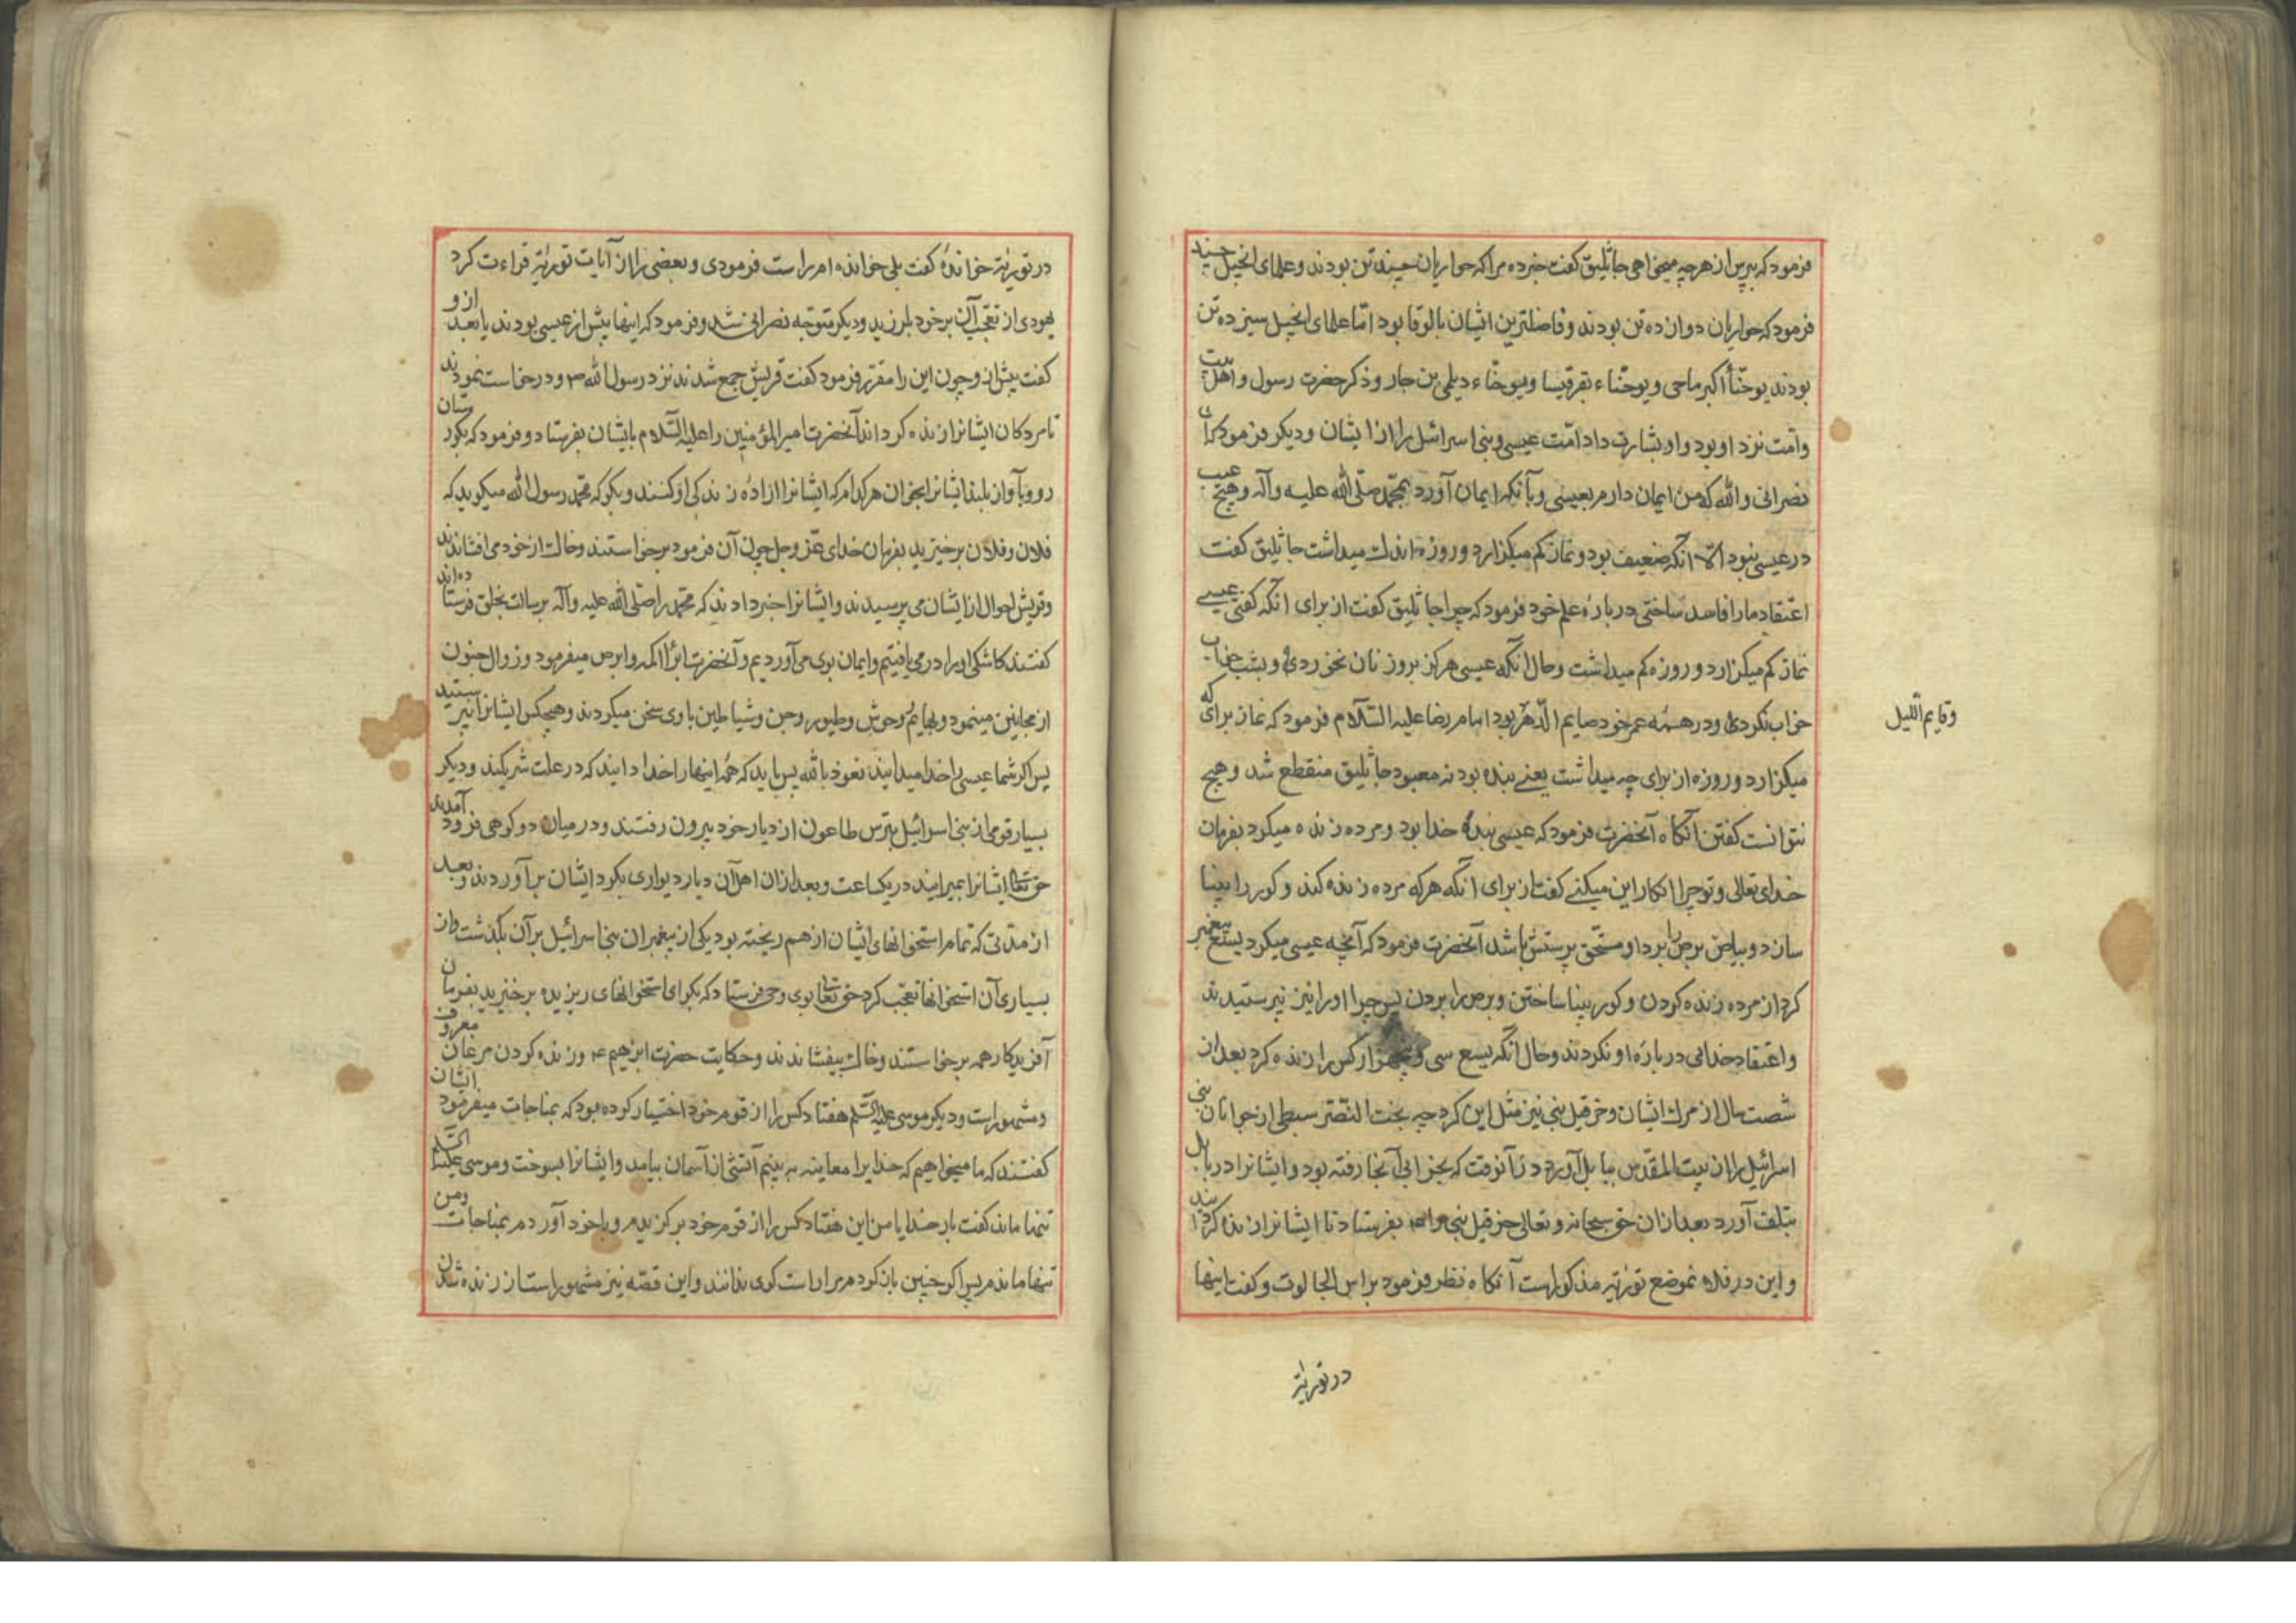 فرمود که بپرس از هرچه میخواهی جاثلیق کفت خبرده مرا که حواریان چند تن بودند و علمای انجیل چند
فرمود که حواریان دوازده تن بودند و فاضلترین ایشان بالوقا بود امّا علمای انجیل سیزده تن
بودند یوحنّا اکبر ماحی و یوحنّاء بقرقیسا و یوحنّاء دیلمی بن جار و ذکر حضرت رسول و اهل بیت
و امّت نزد او بود و او بشارت داد امّت عیسی و بنی اسرائیل را از ایشان و دیکر فرمود که ای
نصرانی والله که من ایمان دارم بعیسی و بآنکه ایمان آورد بمحمّد صلّی الله علیه وآله و هیچ عیب
در عیسی نبود الّا آنکه ضعیف بود و نماز کم میکزارد و روزه اندک میداشت جاثلیق کفت
اعتقاد ما را فاسد ساختی در بارهٔ علم خود فرمود که چرا جاثلیق کفت از برای آنکه کفتی عیسی
نماز کم میکزارد و روزه کم میداشت و حال آنکه عیسی هرکز بروز نان نخوردی و بشب خواب
خواب نکردی و در همه عمر خود صایم الدّهر بود امام رضا علیه السّلام فرمود که نماز برای که
وقایم اللّیل
میکزارد و روزه از برای چه میداشت یعنی بنده بود نه معبود جاثلیق منقطع شد و هیچ
نتوانست کفتن آنکاه آنحضرت فرمود که عیسی بندهٔ خدا بود و مرده زنده میکرد بفرمان
خدای تعالی و تو چرا انکار این میکنی کفت از برای آنکه هرکه مرده زنده کند و کور را بینا
سازد و بیاض برص را برد او مستحق پرستش باشد آنحضرت فرمود که آنچه عیسی میکرد یسع پیغمبر
کرد از مرده زنده کردن و کور بینا ساختن و برص را بردن پس چرا او را نیز نپرستیدند
و اعتقاد خدائی در باره او نکردند و حال آنکه یسع سی و پنجهزار کس را زنده کرد بعد از
شصت سال از مرک ایشان و حزقیل نبی نیز مثل این کرد چه بخت النّصّر سبطی از جوانان بنی
اسرائیل را از بیت المقدّس ببابل آورد در آنوقت که بخرابی آنجا رفته بود و ایشانرا در بابل
بتلف آورد بعد ازان حق سبحانه و تعالی حزقیل نبی را ع بفرستاد تا ایشانرا زنده کردانید
و این در فلان موضع توریٰة مذکور است آنکاه نظر فرمود براس الجالوت و کفت اینها
در توریٰة
در توریٰة خواندهٔ کفت بلی خوانده ام راست فرمودی و بعضی را از آیات توریٰة قراءت کرد
یهودی از تعجّب آن بر خود بلرزید و دیکر متوجّه نصرانی شد و فرمود که اینها پیش از عیسی بودند یا بعد ازو
کفت پیش ازو چون این را مقرّر فرمود کفت قریش جمع شدند نزد رسول الله ص و درخواست نمودند
تا مردکان ایشانرا زنده کرداند آنحضرت امیر المؤمنین را علیه السّلام بایشان بفرستاد و فرمود که بکورستان
رو و بآواز بلند ایشانرا بخوان هرکدام که ایشانرا ارادهٔ زندکی او کنند و بکو که محمّد رسول الله میکوید که
فلان و فلان برخیزید بفرمان خدای عزّ وجل چون آن فرمود برخواستند و خاک از خود می افشاندند
و قریش احوال از ایشان می پرسیدند و ایشانرا خبر دادند که محمّد را صلّی الله علیه وآله برسالت بخلق فرستاده اند
کفتند کاشکی او را در می یافتیم و ایمان بوی می آوردیم و آنحضرت ابراء اکمه و ابرص میفرمود و زوال جنون
از مجانین مینمود و بهایم و وحوش و طیور و جن و شیاطین با وی سخن میکردند و هیچکس ایشانرا نپرستید
پس اکر شما عیسی را خدا میدانید نعوذ بالله پس باید که همه اینها را خدا دانید که در علت شریکند و دیکر
بسیار قومی از بنی اسرائیل بترس طاعون از دیار خود بیرون رفتند و در میان دو کوهی فرود آمدند
حق تعالی ایشانرا بمیرانید در یکساعت و بعد ازان اهل آن دیار دیواری بکرد ایشان برآوردند و بعد
از مدّتی که تمام استخوانهای ایشان از هم ریخته بود یکی از پیغمبران بنی اسرائیل بر آن بکذشت و از
بسیاری آن استخوانها تعجّب کرد حق تعالی بوی وحی فرستاد که بکو ای استخوانهای ریزیده برخیزید بفرمان
آفریدکار همه برخواستند و خاک بیفشاندند و حکایت حضرت ابرهیم ع و زنده کردن مرغان معروف
و مشهور است و دیکر موسی علیه السّلم هفتاد کس را از قوم خود اختیار کرده بود که بمناجات میفرمود ایشان
کفتند که ما میخواهیم که خدایرا معاینه به بینیم آتشی از آسمان بیامد و ایشانرا بسوخت و موسی علیه السّلم
تنها ماند کفت بار خدایا من این هفتاد کس را از قوم خود برکزیدم و با خود آوردم بمناجات و من
تنها ماندم پس اکر چنین باز کردم مرا راست کوی ندانند و این قصّه نیز مشهور است از زنده شدن